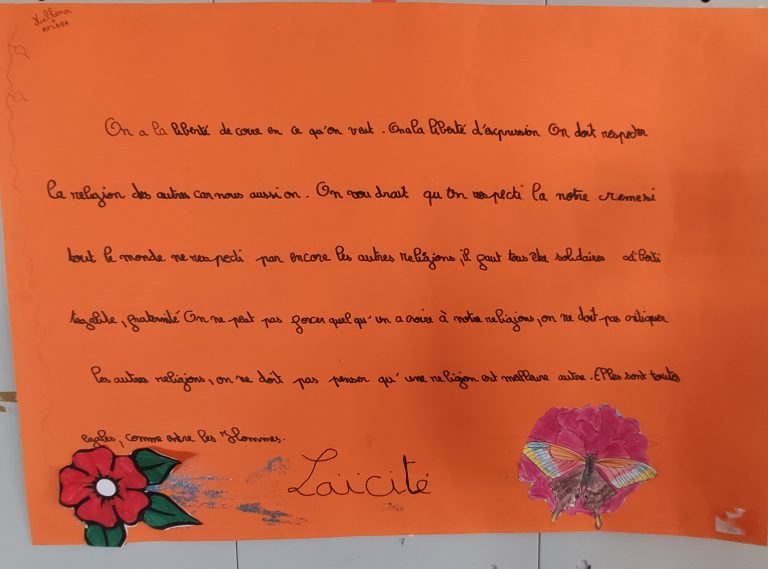 On a la liberté de corre en ce qu'on veut. On a la liberté d'expression On doit respecter
la religion des autres car nous aussi on. On voudrait qu'on respecti la notre memesi
tout le monde ne respecti pas encore les autres religions, il faut tous être solidaires Liberti
tegalite, fraternité On ne peut pas forcer quelqu'un a croire à notre religions, on ne doit pas critiquer
les autres religions, on ne doit pas penser qu'une religion est meilleure autre. Elles sont toutes
egales, comme entre les Hommes.
Laïcité